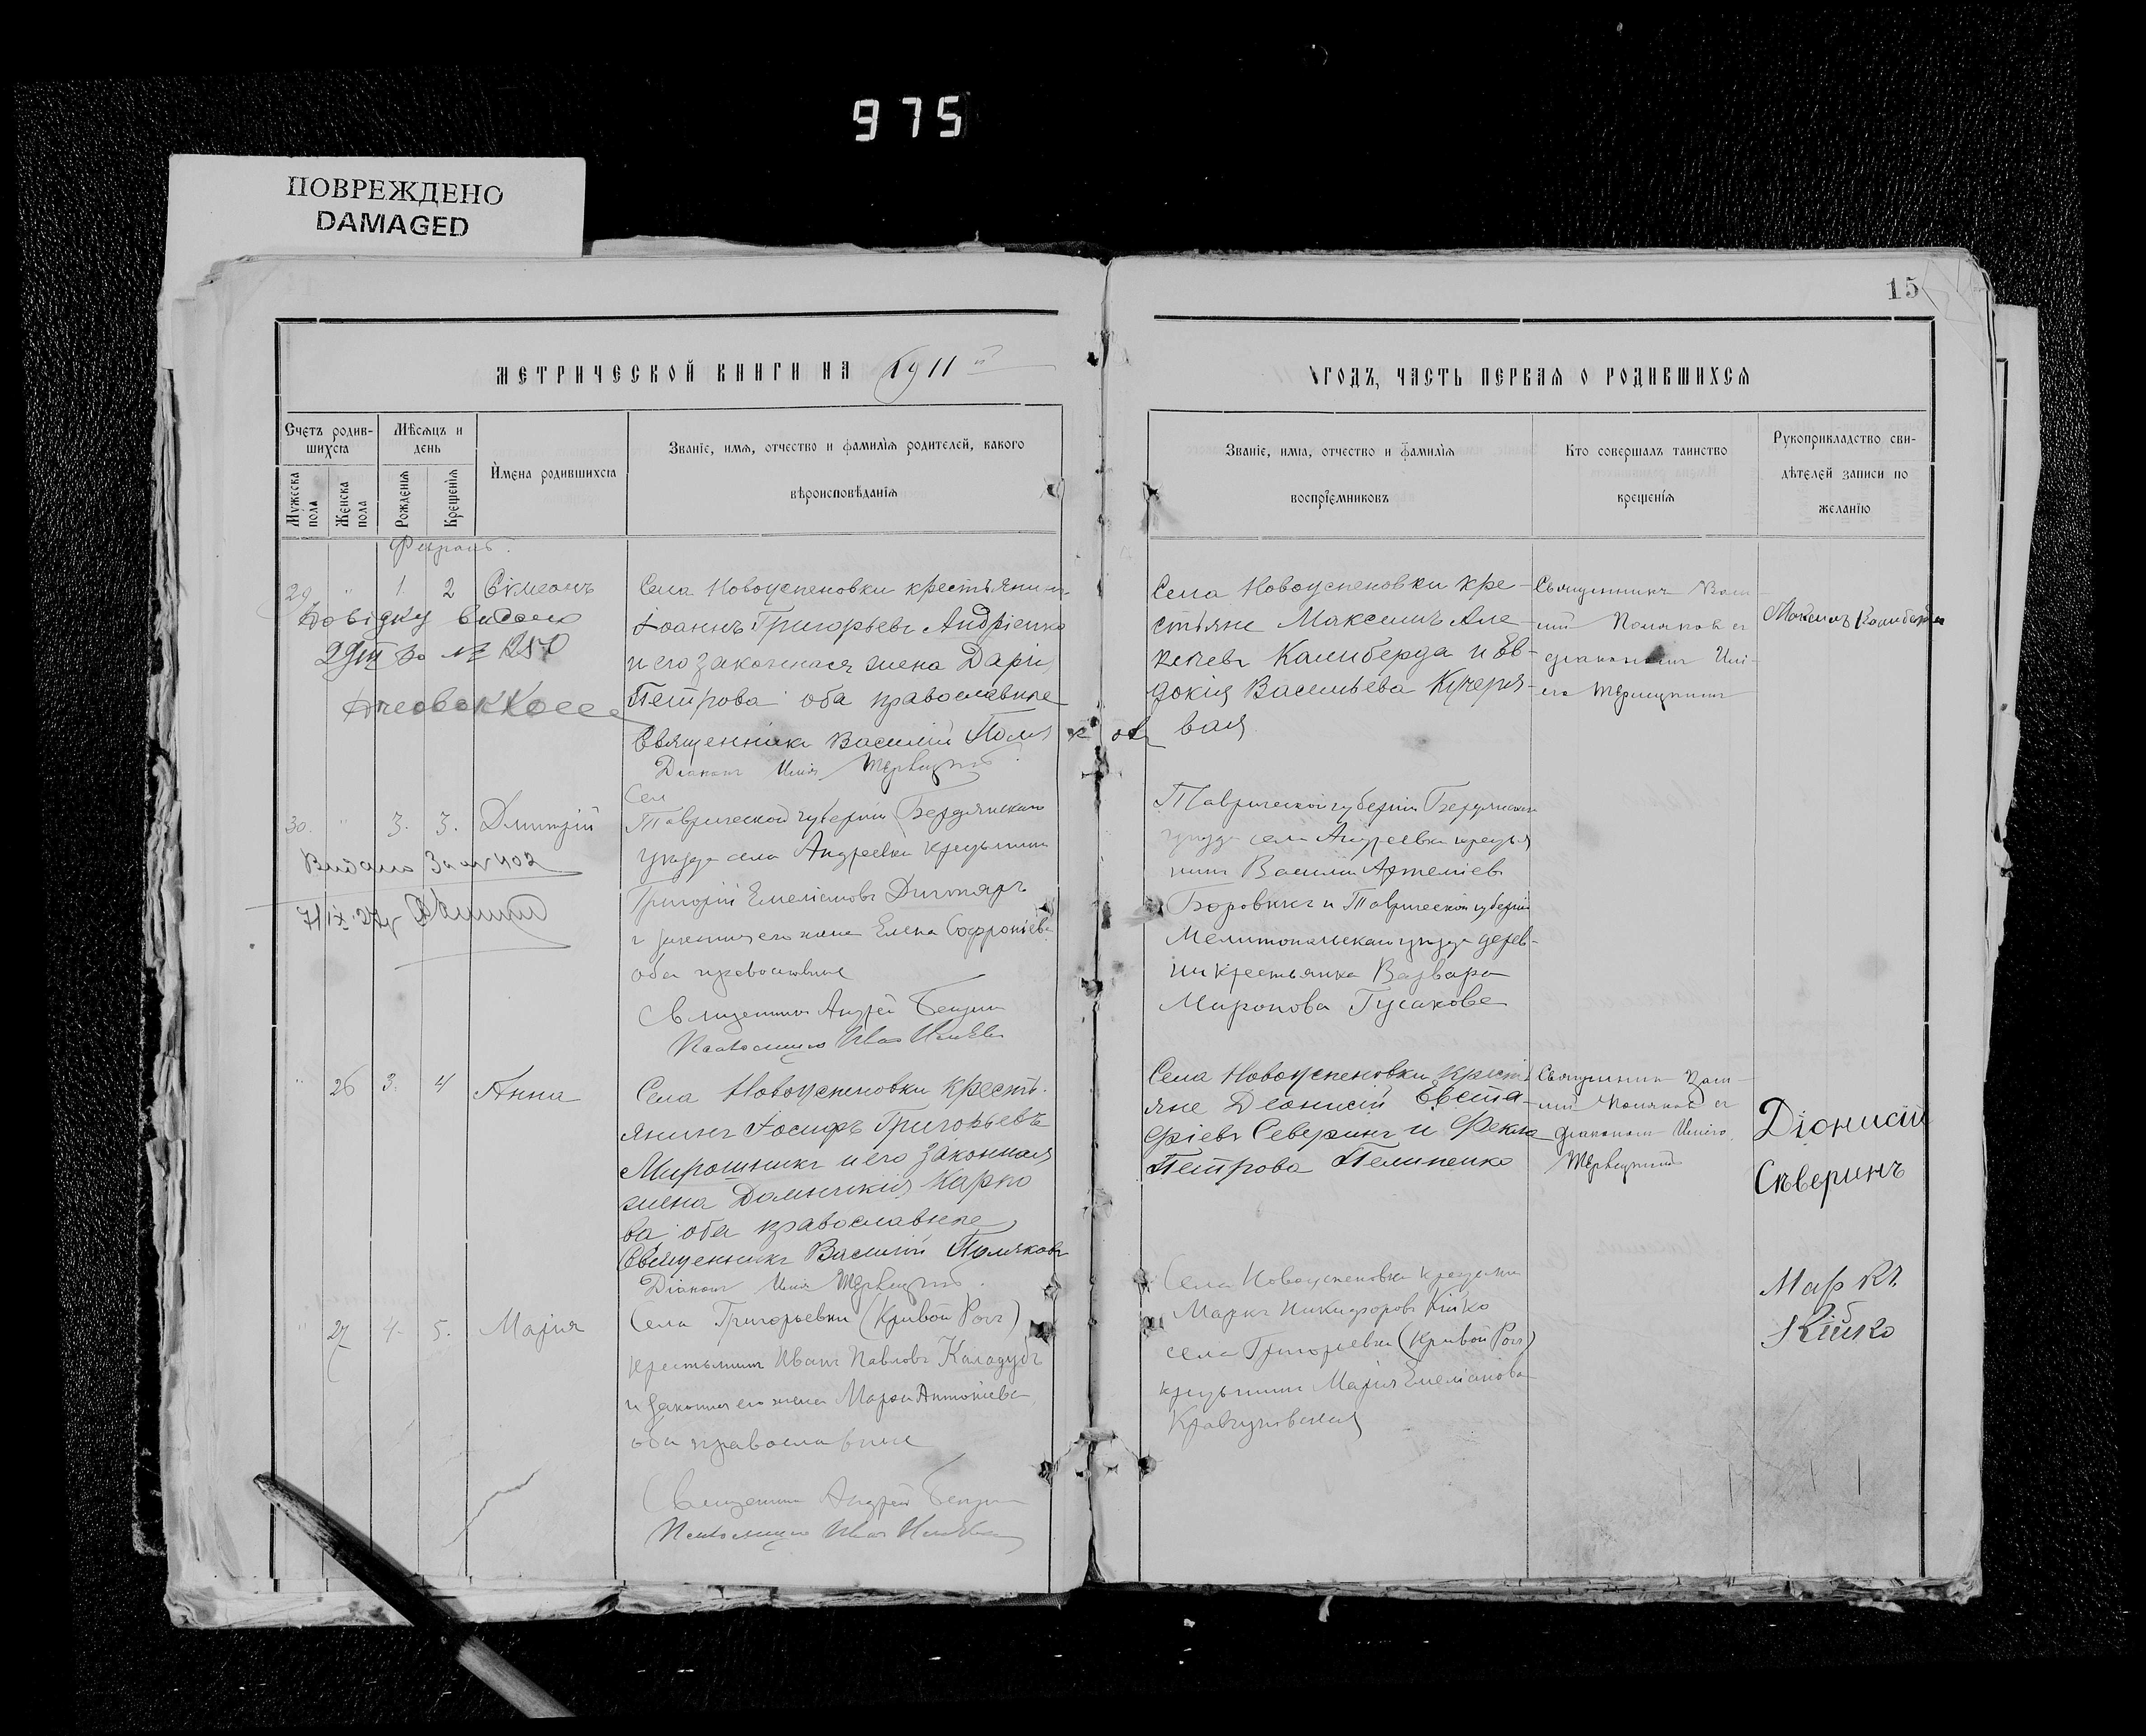 975
ПОВРЕЖДЕНО
DAMAGED
15
МЕТРИЧЕСКОЙ КНИГИ НА 1911 й
ГОДЪ, ЧАСТЬ ПЕРВАЯ О РОДИВШИХСЯ
Счетъ родив-
шихся
Мужеска пола
Женска пола
Мѣсяцъ и
день
Рожденія
Крещенія
Имена родившихся
Званіе, имя, отчество и фамилія родителей, какого
вѣроисповѣданія
Званіе, имя, отчество и фамилія
воспріемниковъ
Кто совершалъ таинство
крещенія
Рукоприкладство сви-
дѣтелей записи по
желанію
29 " 1. 2 Сѵмеонъ
Довідку видано
за № 1250
Села Новоуспеновки крестьянинъ
Іоаннъ Григорьевъ Андріенко
и его законная жена Дарія
Петрова оба православные
Священникъ Василій Поляковъ
Діаконъ Илія
Села Новоуспеновки кре-
стьяне Максимъ Але-
ксѣевъ Калиберда и Ев-
докія Васильева Кучеря-
вая
Священникъ Васи-
лій Поляковъ съ
діакономъ Илі-
ею
Максимъ Калиберда
30. " 3. 3. Дмитрій
Видано за № 402
7/IX 27
Сел
Таврической губерніи Бердянскаго
уѣзда села Андреевки крестьянинъ
Григорій Емеліановъ Дихтярь
и законная его жена Елена Софроніева
оба православные
Священникъ Андрей
Псаломщикъ Иванъ
Таврической губерніи Бердянскаго
уѣзда села Андреевки крестья
нинъ Василій Артеміевъ
Боровикъ и Таврической губерніи
Мелитопольскаго уѣзда дерев-
ни крестьянка Варвара
Миронова Гусакова
" 26 3. 4 Анна
Села Новоуспеновки кресть-
янинъ Іосифъ Григорьевъ
Мирошникъ и его законная
жена Домникія Карпо
ва оба православные
Священникъ Василій Поляковъ
Діаконъ Илія
Села Новоуспеновки кресть
яне Діонисій Евста-
фіевъ Северинъ и Фекла
Петрова Пелипенко
Священникъ Васи-
лій Поляковъ съ
діакономъ Иліею
Діонисій
Сѣверинъ
" 27 4. 5. Марія
Села Григорьевки (Кривой Рогъ)
крестьянинъ Иванъ Павловъ Каладубъ
и законная его жена Марфа Антоніева
оба православные
Священникъ Андрей
Псаломщикъ Иванъ
Села Новоуспеновки крестьянинъ
Маркъ Никифоровъ Кійко
села Григорьевки (Кривой Рогъ)
крестьянка Марія Емеліанова
Маркъ
Кійко